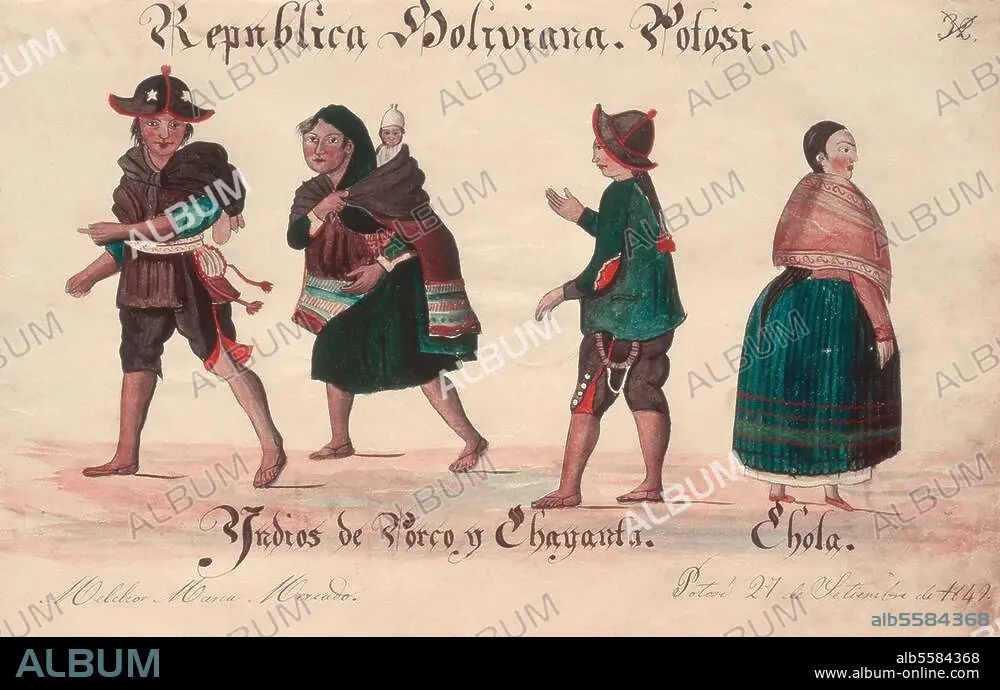 Republica Boliviana. Potosi.
32.
Yndios de Porco y Chayanta.
Chola.
Melchor Maria Mercado.
Potosí 27 de Setiembre de 1849.
ALBUM
alb5584368
ALBUM
alb5584368
www.album-online.com